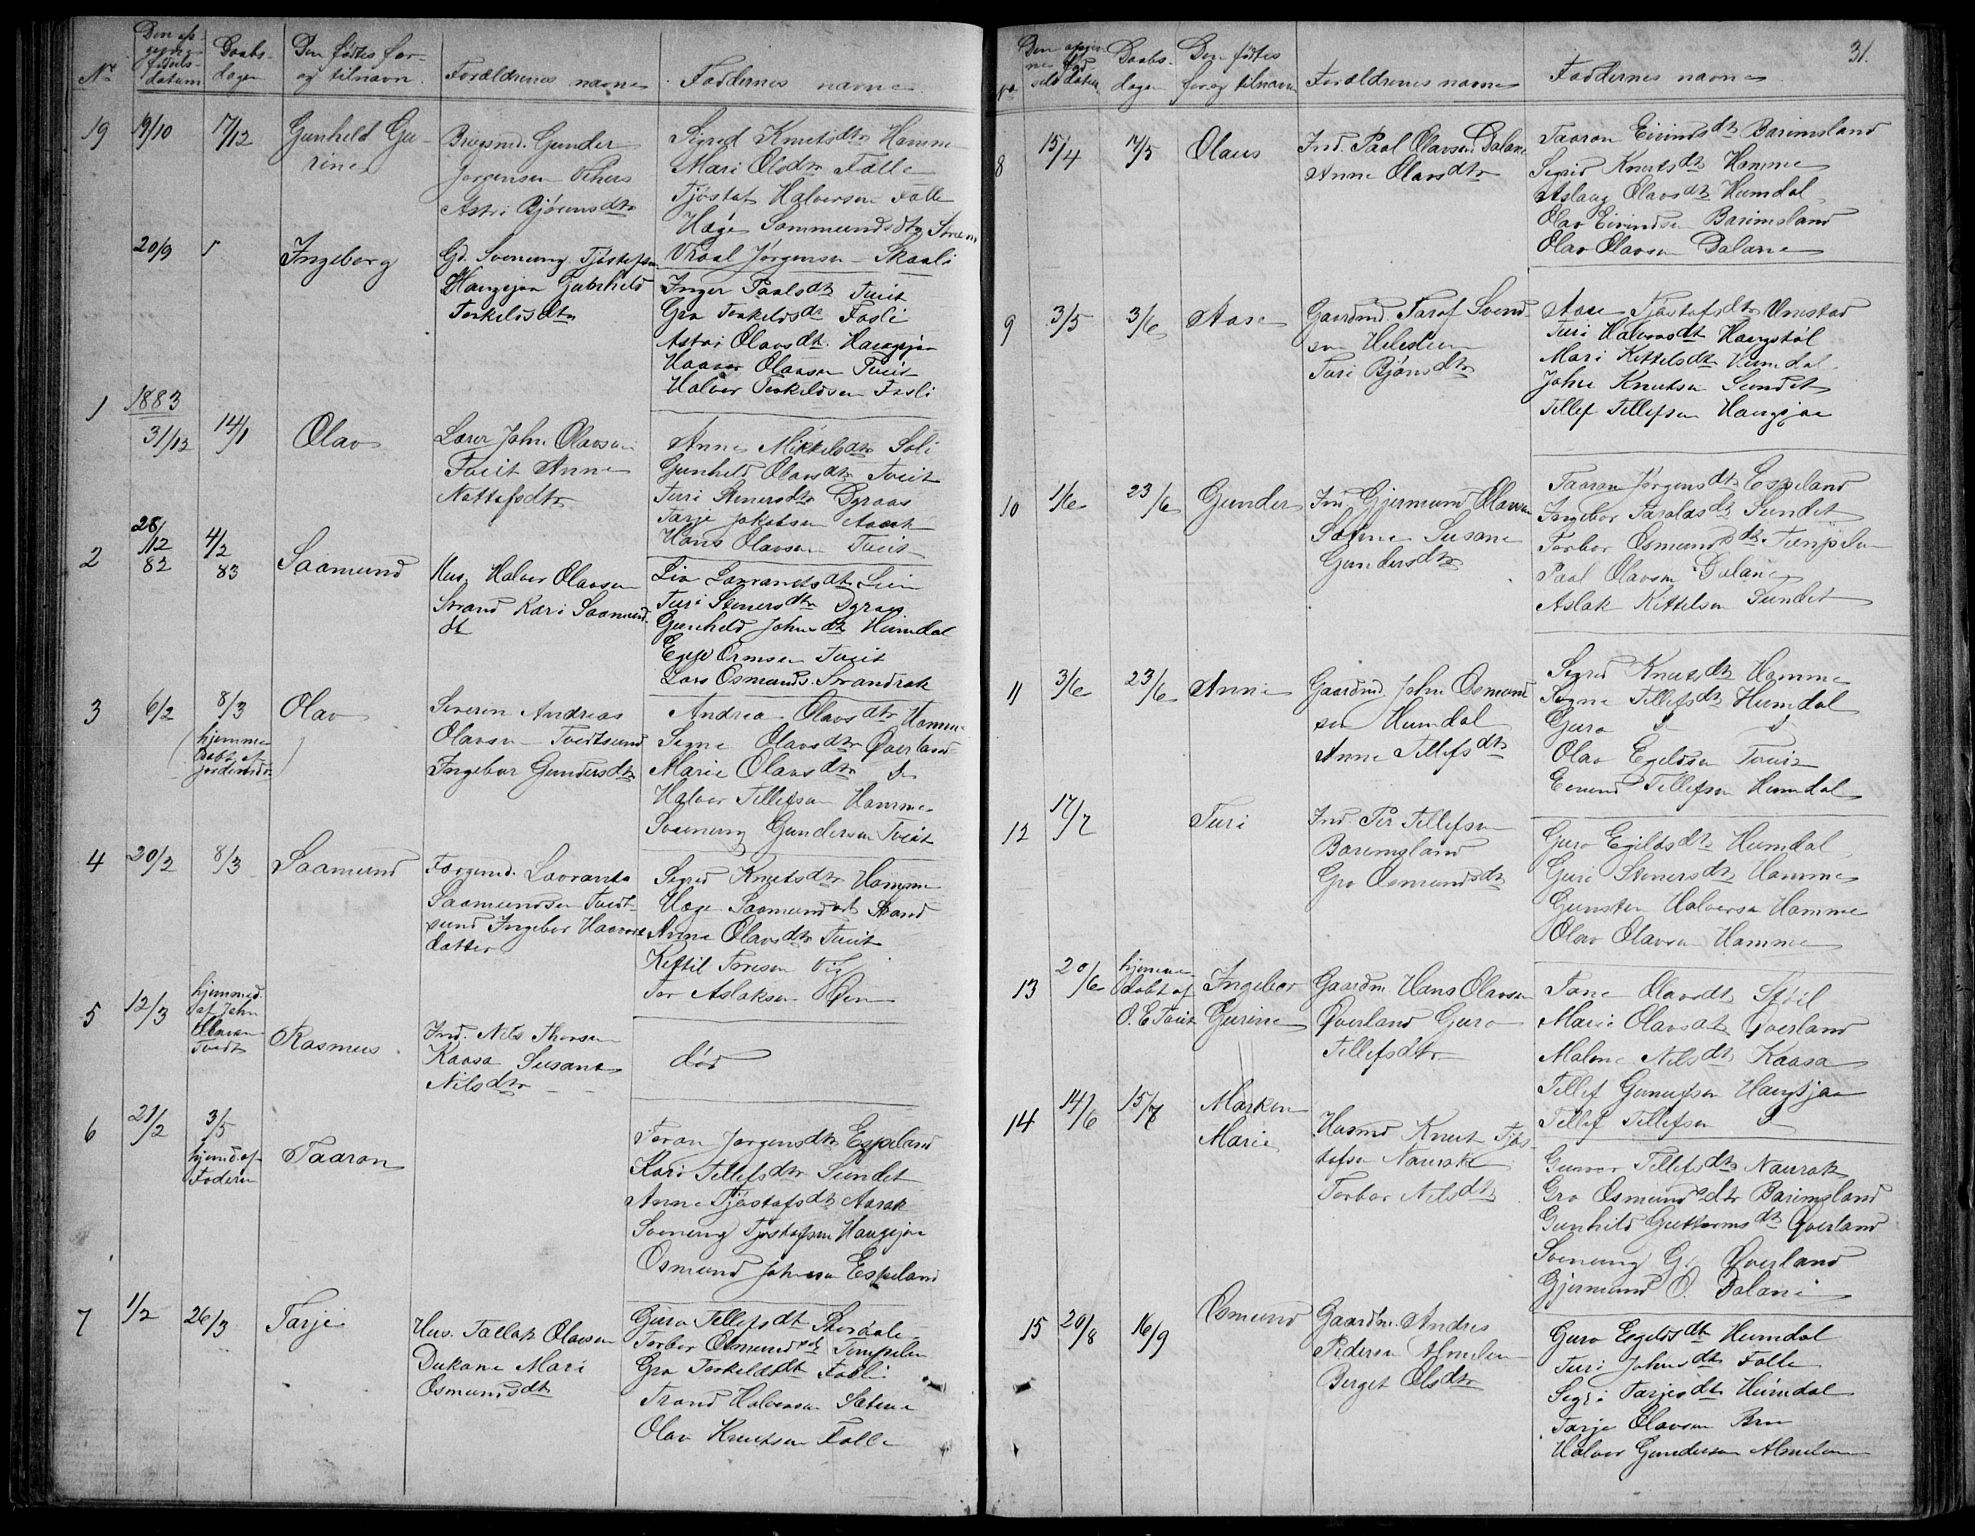 Nr
Den op-
givne
fødsels-
datum
Daabs-
dagen
Den fødtes for-
og tilnavn.
Forældrenes navne
Faddernes navne
19
19/10
17/12
Gunhild Gu-
rine
Brugsmd. Gunder
Jørgensen
Astri Bjørensdtr
Sigred Knutsdtr Hamme
Mari Olsdtr Folle
Tjøstof Halvorsen Folle
Hæge Sommundsdtr
Vraal Jørgensen Skaali
20/9
Ingeborg
Gd. Svenung Tjøstofsen
Haugsjaa Gunhild
Torkildsdtr
Inger Paalsdt Tveit
Gro Torkildsdt Fosli
Astri Olavsdt. Haugsjaa
Haavor Olavsen Tveit
Halvor Torkildsen Fosli
1
1883
31/12
14/1
Olav
Lærer John Olavsen
Tveit Anne
Nottofsdtr
Anne Mikkelsdtr Soli
Gunhild Olavsdtr Tveit
Turi Stenersdtr
Tarje Jakobsen
Hans Olavsen Tveit
2
28/12
82
4/2
83
Saamund
Hus. Halvor Olavsen
Strand Kari Saamund
dt
Liv Lavrantsdt Lien
Turi Stenersdtr
Gunhild Johnsdt Heimdal
Egil Ormsen Tveit
Lars Osmunds. Strandrak
3
6/2
8/3
(hjemme
døbt af
jordemdr)
Olav
Severin Andreas
Olavsen Tvedtsund
Ingebor Gundersdtr
Andrea Olavsdtr Hamme
Signe Olavsdtr Øverland
Marie Olavsdtr
Halvor Tellefsen Hamme
Svenung Gundersen Tveit
4
20/2
8/3
Saamund
Forgmd. Lavrants
Saamundsen Tvedt-
sund Ingebor Haavors
datter
Sigred Knutsdtr Hamme
Hæge Saamundsdt Strand
Anne Olavsdtr Tveit
Kittil Toresen
Tor Aslaksen Øen
5
12/3
hjemmed.
af John
Olavsen
Tvedt
Rasmus
Ind. Nils Thorsen
Kaasa Susanne
Nilsdtr
død
6
21/2
3/5
hjemd. af
Faderen
Taaran
Toran Jørgensdtr Espeland
Kari Tellefsdtr Sundet
Anne Tjøstofsdt Aasak
Svenung Tjøstofsen Haugsjaa
Osmund Johnsen Espeland
7
1/2
26/3
Tarje
Hus. Tallak Olavsen
Dukane Mari
Osmundsdt
Guro Tellefsdt
Torbor Osmundsdt Tempelen
Gro Torkildsdt Fosli
Trond Halvorsen Sætene
Olav Knutsen Folle
31.
Nr
Den opgiv-
ne fød-
selsdatum
Daabs-
dagen
Den fødtes
for og tilnavn
Forældrenes navne
Faddernes navne
8
15/4
17/5
Olaus
Ind. Paal Olavsen Dalane
Anne Olavsdtr
Taaran Eivindsdt Barimsland
Sigrid Knutsdt Hamme
Aslaug Olavsdt Heimdal
Olav Eivindsen Barimsland
Olav Olavsen Dalane
9
3/5
3/6
Aase
Gaardmd. Tarof Svend
sen
Turi Bjønsdtr
Aase Tjøstofsdtr Vimstad
Turi Halvorsdt Haugstøl
Mari Kittelsdt Heimdal
John Knutsen Sundet
Tellef Tellefsen Haugsjaa
10
1/6
23/6
Gunder
Ind Gjermund Olavsen
Sætene Susane
Gundersdtr
Taaran Jørgensdt Espeland
Ingebor Taralsdt Sundet
Torbor Osmundsdt. Tempelen
Paal Olavsen Dalane
Aslak Kittelsen Sundet
11
3/6
23/6
Anne
Gaardmd. John Osmund
sen Heimdal
Anne Tellefsdt
Sigrid Knutsdt Hamme
Signe Tellefsdt Heimdal
Guro
Olav Egeldsen Tveit
Eivind Tellefsen Heimdal
12
17/7
Turi
Ind Per Tellefsen
Barimsland
Gro Osmundsdt
Guro Egildsdt Heimdal
Guri Stenersdt Hamme
Gunsten Halvorsen Hamme
Olav Olavsen Hamme
13
20/6
hjemme
døbt af
O. E Tveit
Ingebor
Gurine
Gaardm. Hans Olavsen
Øverland Guro
Tellefsdtr
Tone Olavsdt Støil
Marie Olavsdt Øverland
Malene Nilsdt Kaasa
Tellef Gunufsen Haugsjaa
Tellef Tellefsen
14
14/6
15/7
Marken
Marie
Husmd Knut Tjøs
tofsen Naurak
Torbor Nilsdt
Gunvor Tellefsdt Naurak
Gro Osmundsdtr Barimsland
Gunhild Guttormsdt Øverland
Svenung G. Øverland
Gjermund O. Dalane
15
20/8
16/9
Osmund
Gaardm. Andres
Pedersen Almelien
Berget Olsdtr
Guro Egeldsdt Heimdal
Turi Johnsdt Folle
Sigri Tarjesdt Heimdal
Tarje Olavsen Bru
Halvor Gundersen Almelien